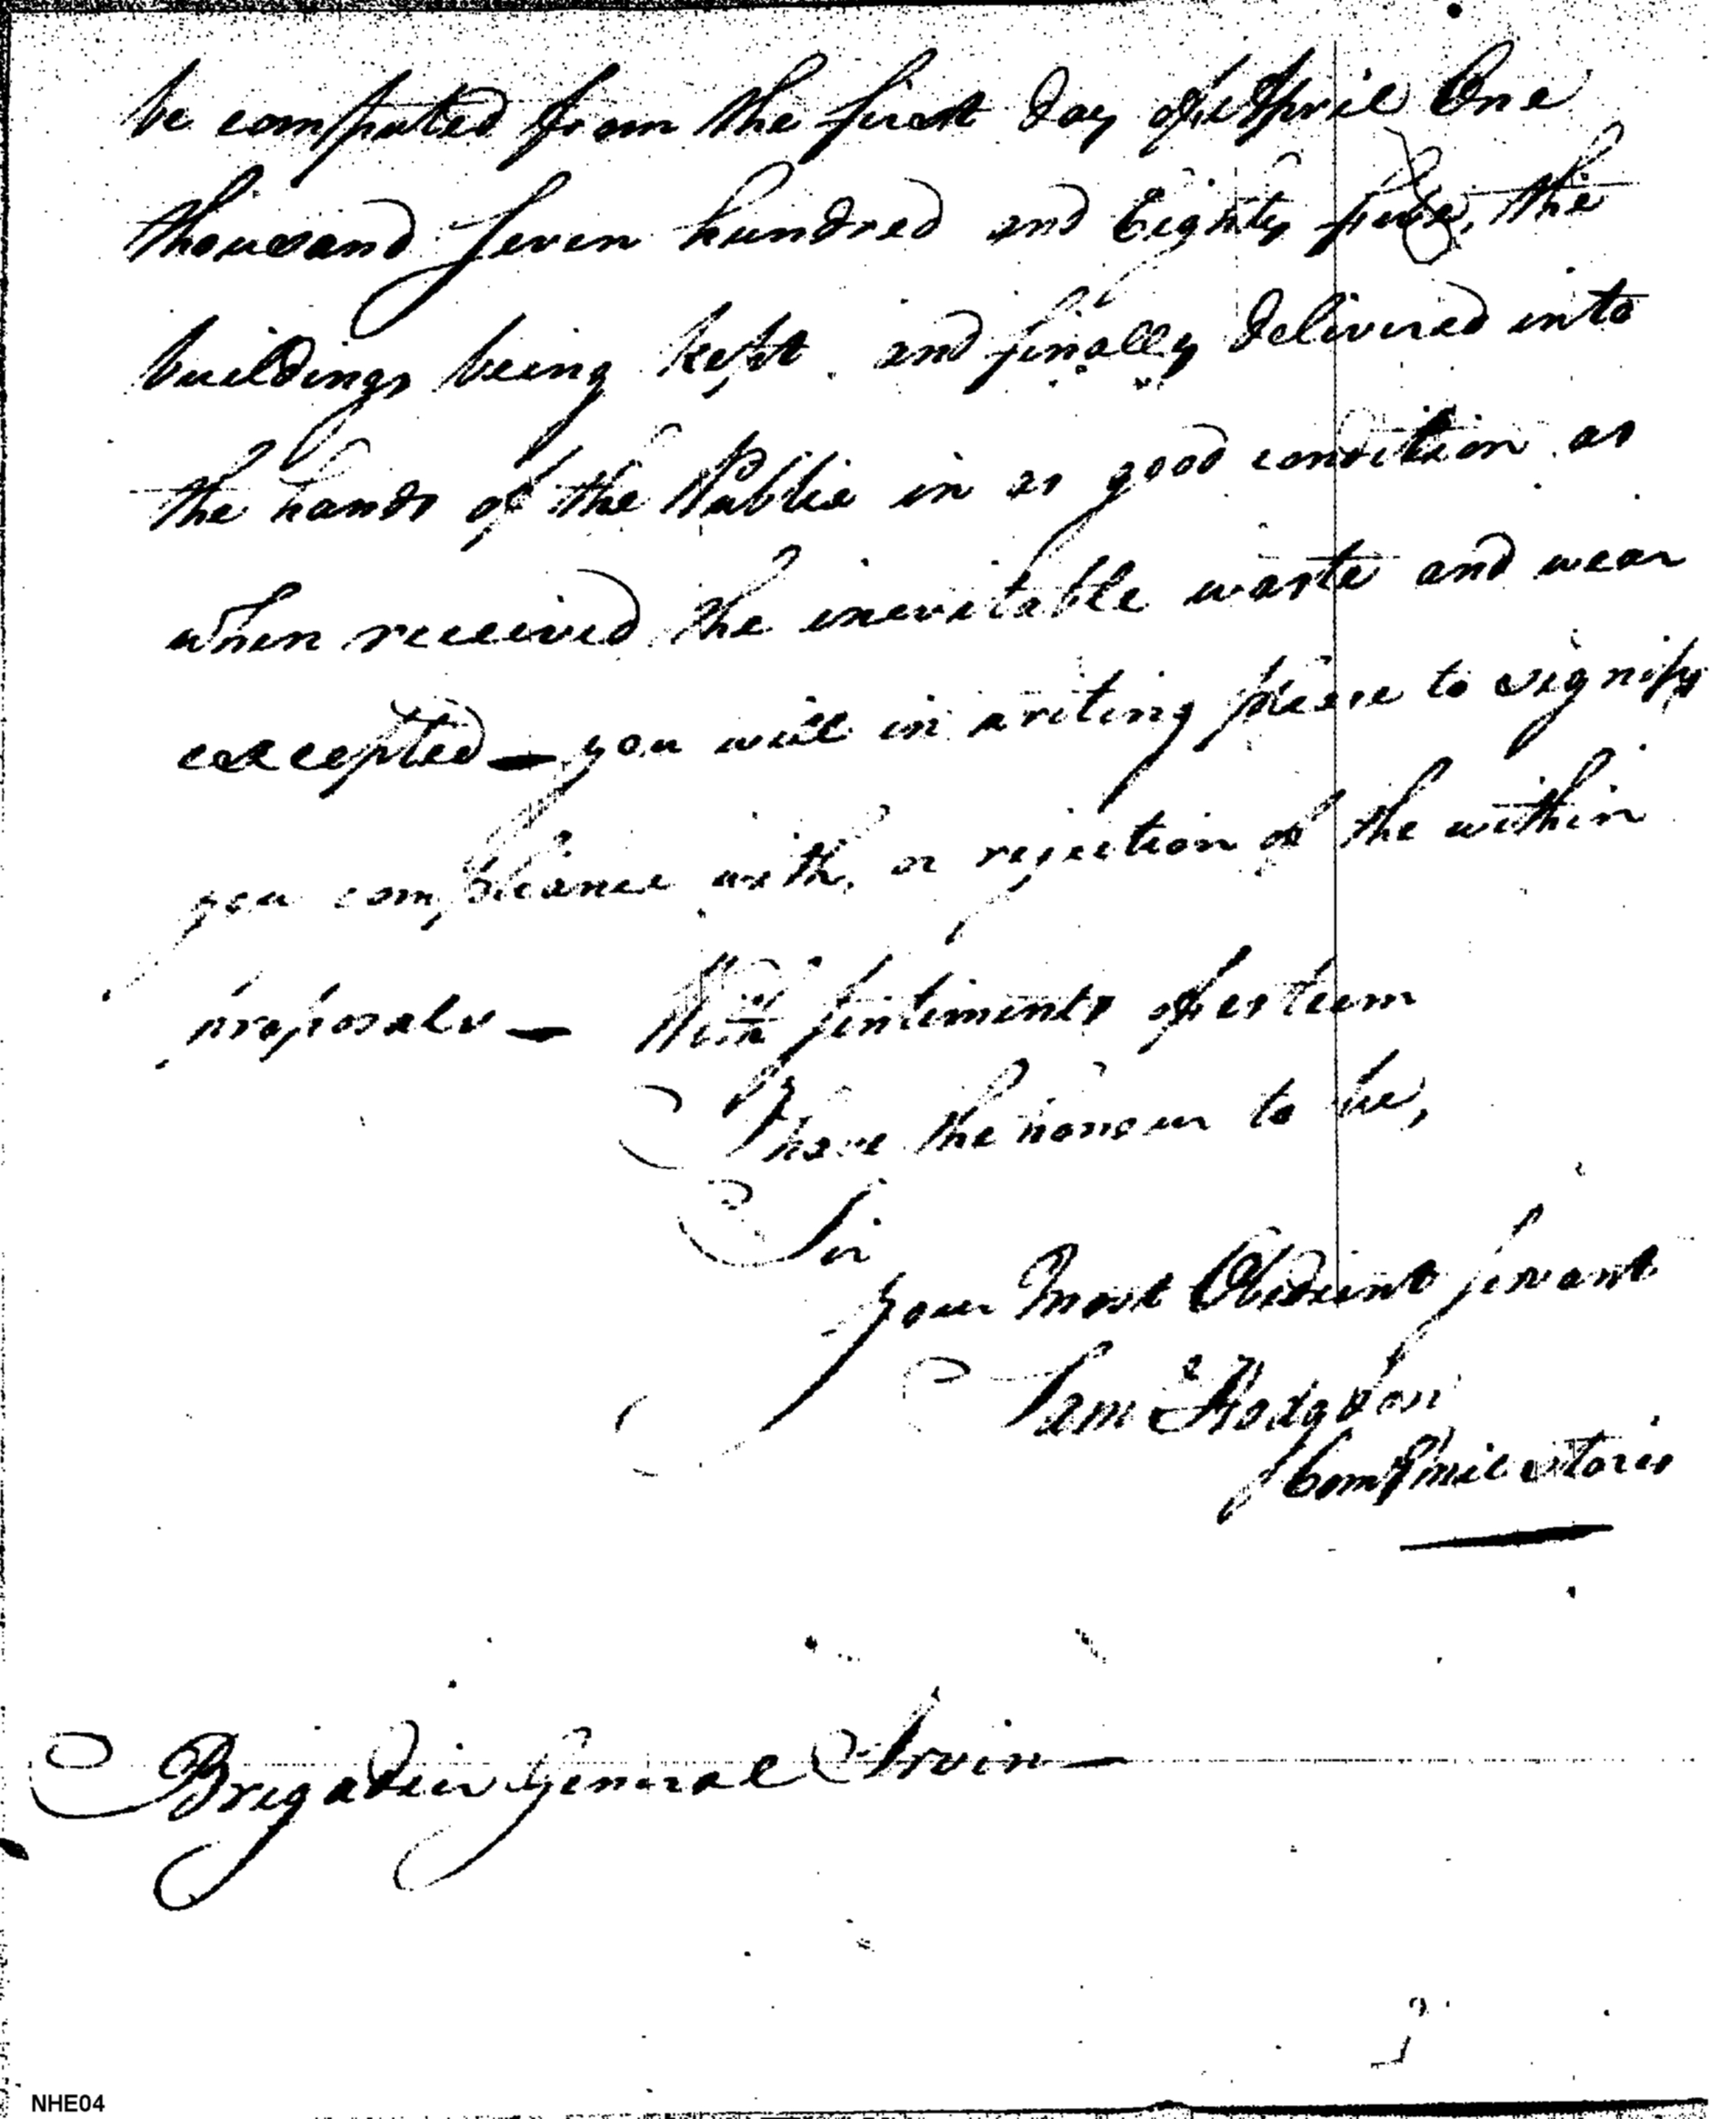 be computed from the first day of April One
thousand Seven hundred and Eighty five, the
buildings being kept and finally delivered into
the hands of the Publie in as good condition as
when received the inevitable waste and wear
excepted — you will in writing please to signify
you compliance with, or rejection of the within
proposals — With sentiments of esteem
I have the honour to be,
Sir
your most Obedient servant
Saml Hodgdon
Com Mil Stores
Brigadier General Irvin —
NHE04